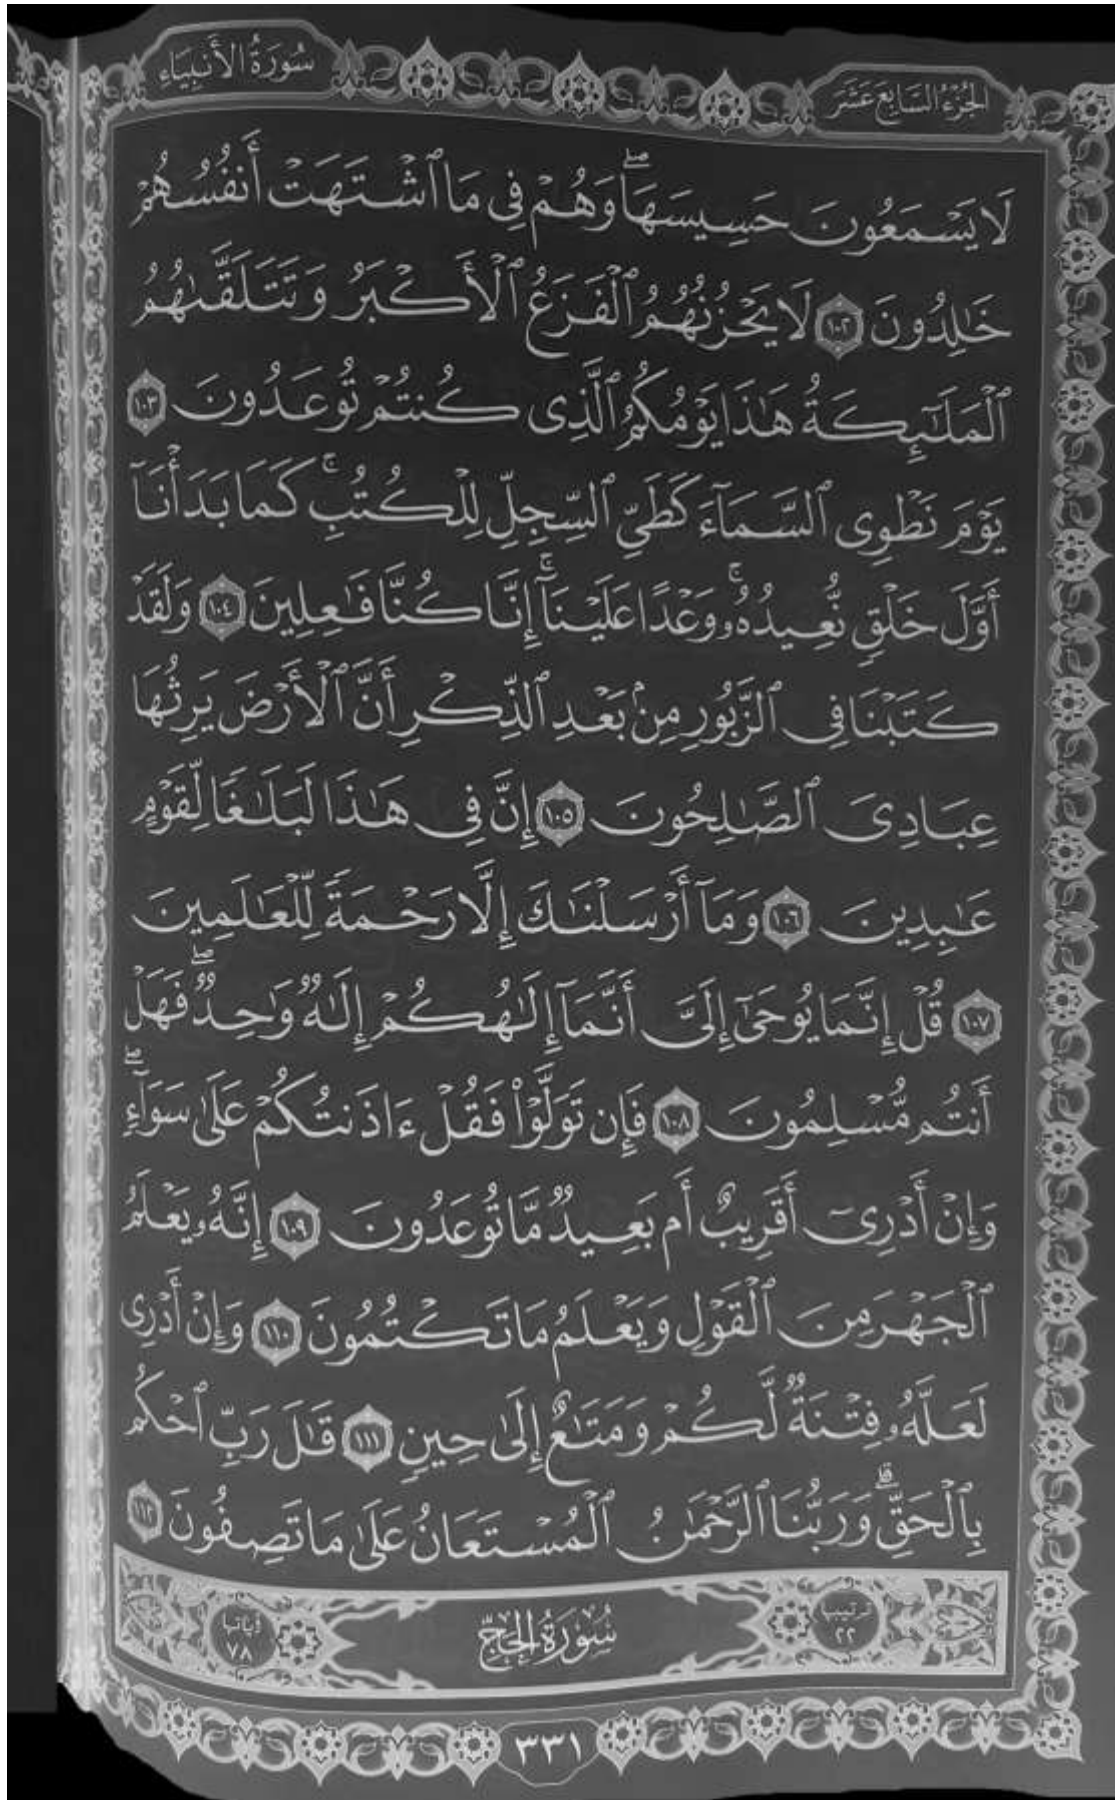 الجُزْءُ السَّابِعَ عَشَرَ
سُورَةُ الأَنبِيَاءِ
لَا يَسْمَعُونَ حَسِيسَهَاۖ وَهُمْ فِي مَا ٱشْتَهَتْ أَنفُسُهُمْ
خَٰلِدُونَ ١٠٢ لَا يَحْزُنُهُمُ ٱلْفَزَعُ ٱلْأَكْبَرُ وَتَتَلَقَّىٰهُمُ
ٱلْمَلَٰٓئِكَةُ هَٰذَا يَوْمُكُمُ ٱلَّذِى كُنتُمْ تُوعَدُونَ ١٠٣
يَوْمَ نَطْوِى ٱلسَّمَآءَ كَطَىِّ ٱلسِّجِلِّ لِلْكُتُبِۚ كَمَا بَدَأْنَآ
أَوَّلَ خَلْقٍ نُّعِيدُهُۥۚ وَعْدًا عَلَيْنَآۚ إِنَّا كُنَّا فَٰعِلِينَ ١٠٤ وَلَقَدْ
كَتَبْنَا فِى ٱلزَّبُورِ مِنۢ بَعْدِ ٱلذِّكْرِ أَنَّ ٱلْأَرْضَ يَرِثُهَا
عِبَادِىَ ٱلصَّٰلِحُونَ ١٠٥ إِنَّ فِى هَٰذَا لَبَلَٰغًا لِّقَوْمٍ
عَٰبِدِينَ ١٠٦ وَمَآ أَرْسَلْنَٰكَ إِلَّا رَحْمَةً لِّلْعَٰلَمِينَ
١٠٧ قُلْ إِنَّمَا يُوحَىٰٓ إِلَىَّ أَنَّمَآ إِلَٰهُكُمْ إِلَٰهٌ وَٰحِدٌۖ فَهَلْ
أَنتُم مُّسْلِمُونَ ١٠٨ فَإِن تَوَلَّوْا۟ فَقُلْ ءَاذَنتُكُمْ عَلَىٰ سَوَآءٍۖ
وَإِنْ أَدْرِىٓ أَقَرِيبٌ أَم بَعِيدٌ مَّا تُوعَدُونَ ١٠٩ إِنَّهُۥ يَعْلَمُ
ٱلْجَهْرَ مِنَ ٱلْقَوْلِ وَيَعْلَمُ مَا تَكْتُمُونَ ١١٠ وَإِنْ أَدْرِى
لَعَلَّهُۥ فِتْنَةٌ لَّكُمْ وَمَتَٰعٌ إِلَىٰ حِينٍ ١١١ قَٰلَ رَبِّ ٱحْكُم
بِٱلْحَقِّۗ وَرَبُّنَا ٱلرَّحْمَٰنُ ٱلْمُسْتَعَانُ عَلَىٰ مَا تَصِفُونَ ١١٢
ترتيبها ٢٢
سُورَةُ الحَجِّ
آياتها ٧٨
٣٣١